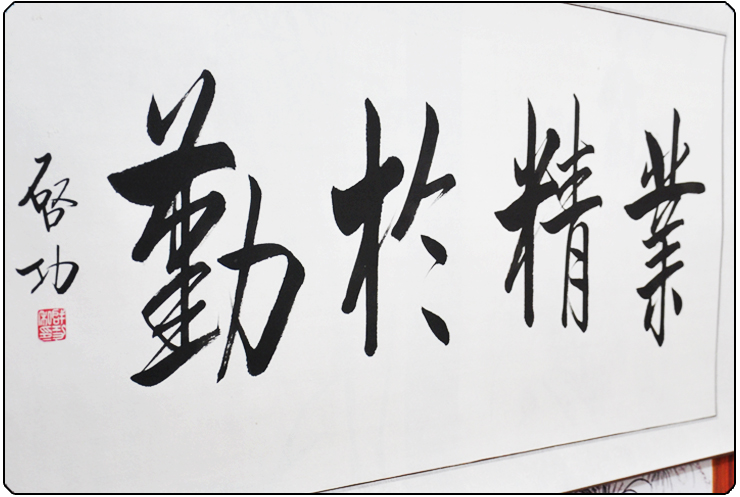 業精於勤
啓功